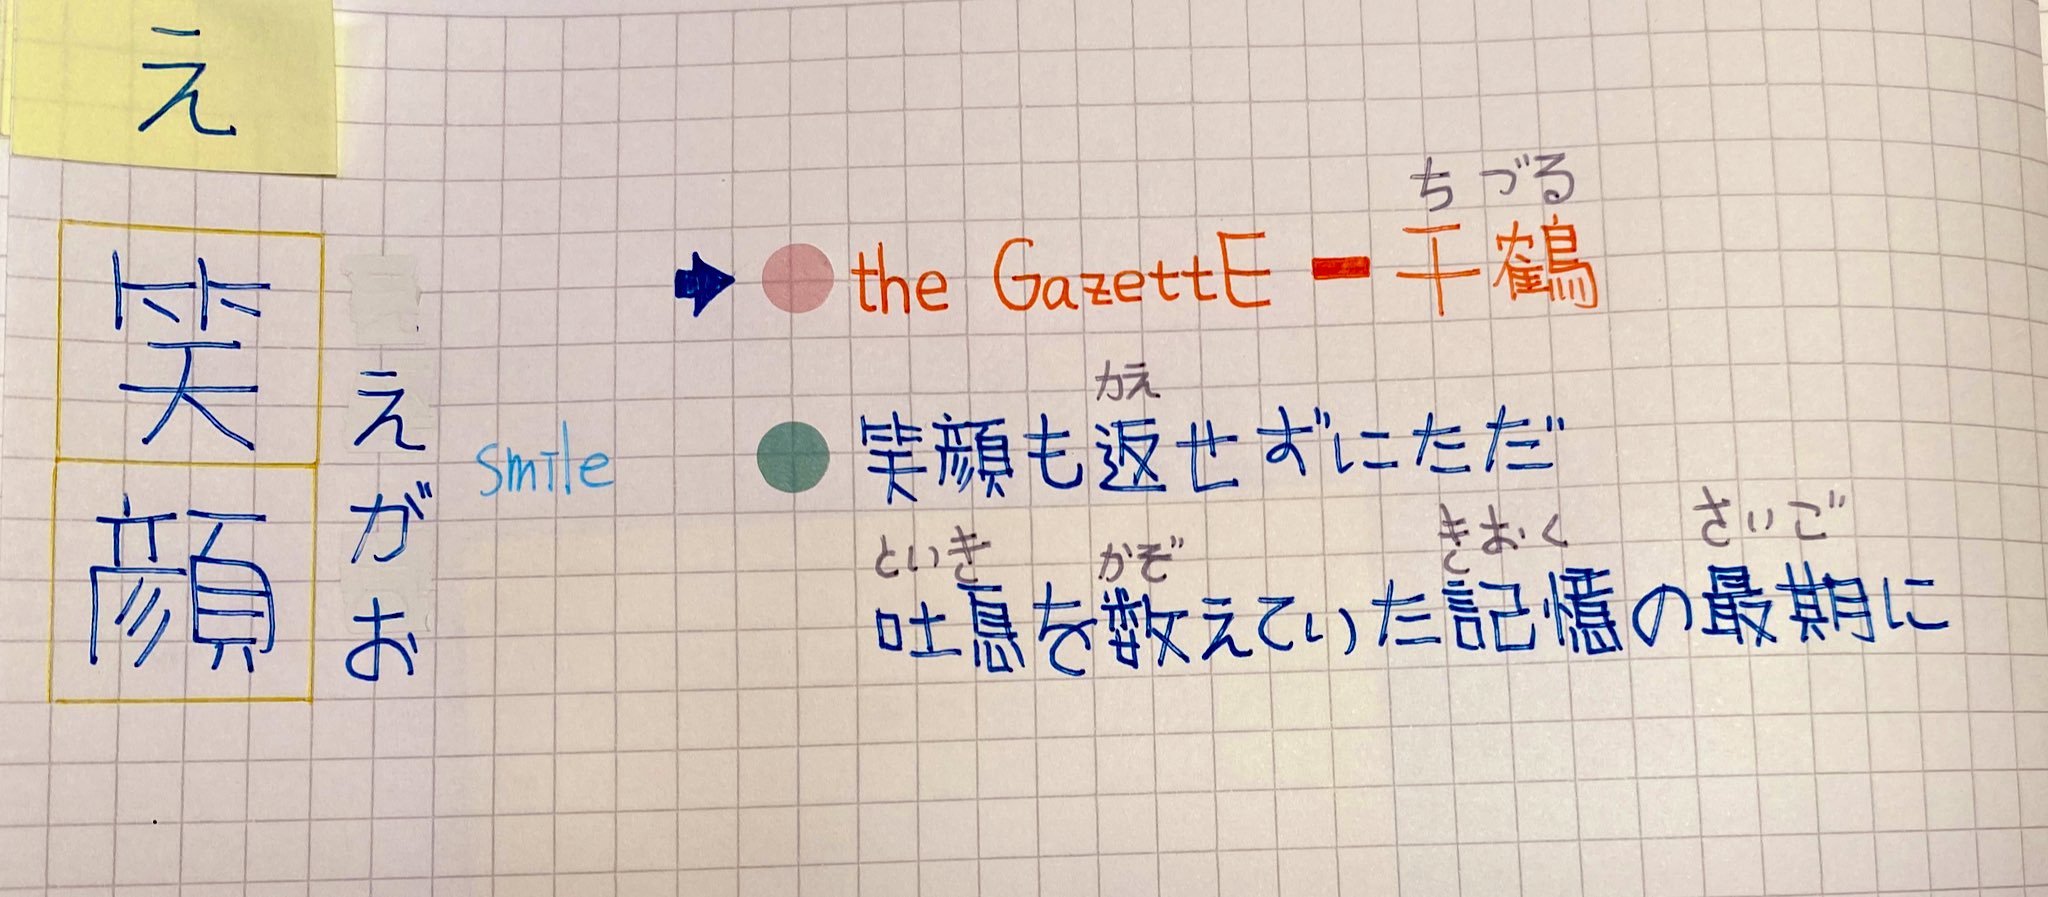 え
笑顔
えがお
smile
ちづる
the GazettE ー 千鶴
かえ
笑顔も返せずにただ
といき かぞ きおく さいご
吐息を数えていた記憶の最期に